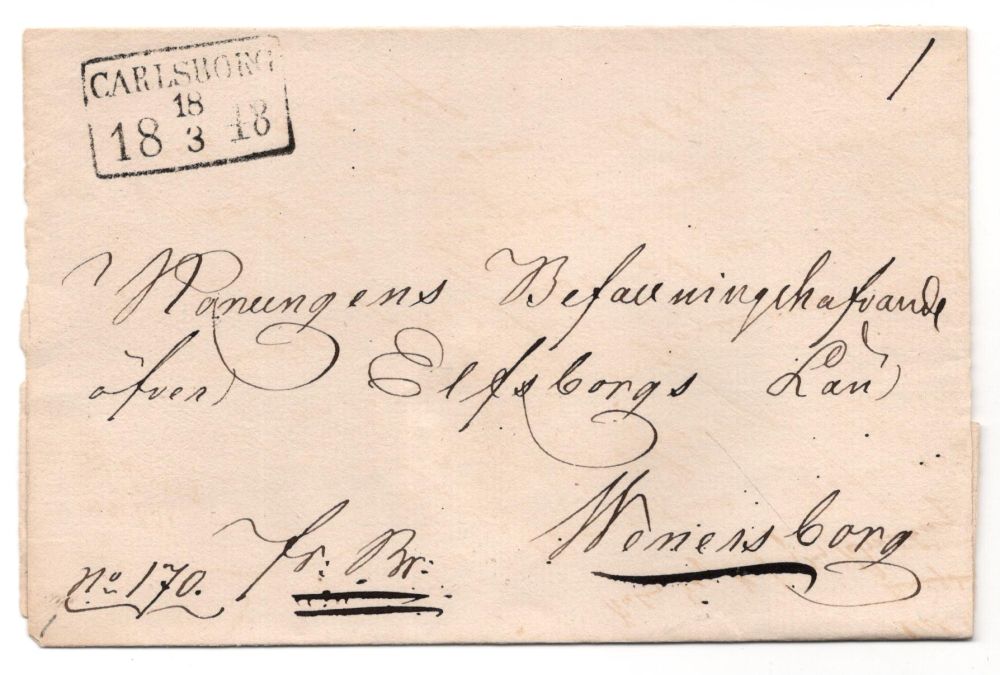 CARLSBORG
18
18 3 48
/
Konungens Befallningshafvande
öfver Elfsborgs Län
Wenersborg
no 170. fr: Br: